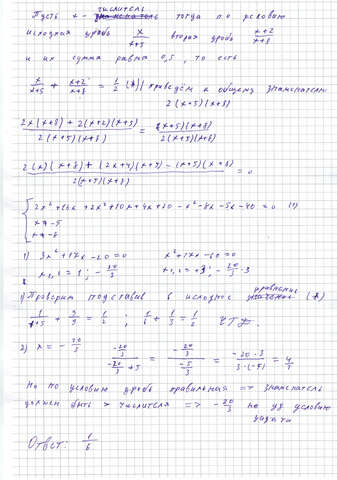 числитель
Пусть x - тогда по условию
исходная дробь x/(x+5) вторая дробь (x+2)/(x+8)
и их сумма равна 0,5, то есть
x/(x+5) + (x+2)/(x+8) = 1/2 (*) | приведём к общему знаменателю
2(x+5)(x+8)
(2x(x+8) + 2(x+2)(x+5))/(2(x+5)(x+8)) = ((x+5)(x+8))/(2(x+5)(x+8))
(2(x)(x+8) + (2x+4)(x+5) - (x+5)(x+8))/(2(x+5)(x+8)) = 0
{ 2x²+16x + 2x²+10x+4x+20 - x²-8x-5x-40 = 0 (1)
x≠-5
x≠-8
1) 3x²+17x-20=0 x²+17x-60=0
x₁,₂ = 1; -20/3 x₁,₂ = 3; -20/3·3
1) Проверим подставив в исходное уравнение (*)
1/(1+5) + 3/9 = 1/2 ; 1/6 + 1/3 = 1/2 ЧТД.
2) x = -20/3 (-20/3)/(-20/3+5) = (-20/3)/(-5/3) = (-20·3)/(3·(-5)) = 4/1
Но по условию дробь правильная => знаменатель
должен быть > числителя => -20/3 не уд условию
задачи
Ответ: 1/6